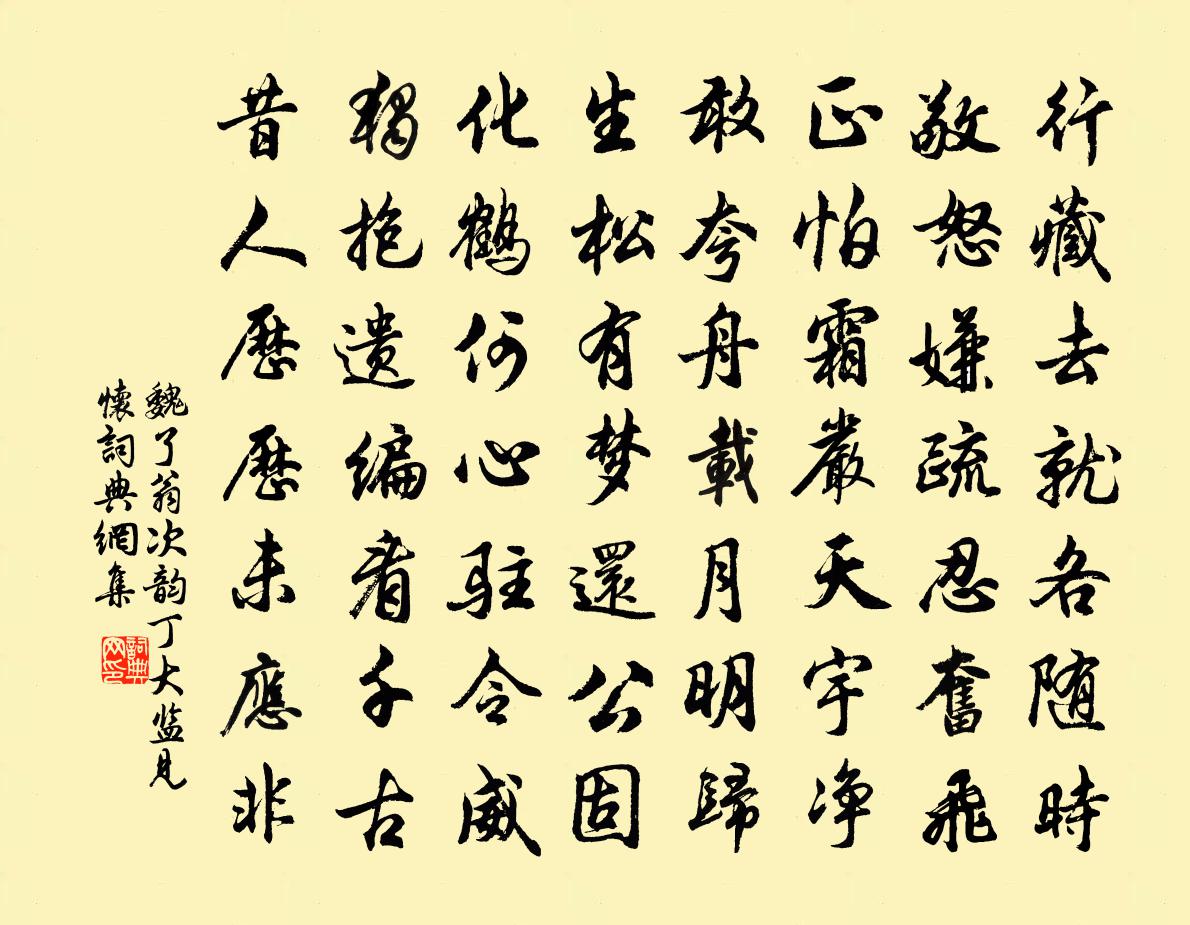 行藏去就各随時
敬怒嫌疏忍奮飛
正怕霜嚴天宇净
敢夸舟載月明歸
生松有梦還公固
化鶴何心駐令威
獨抱遗编看千古
昔人歷歷未應非
魏了翁次韵丁大监見
懷詞典網集
詞典网印